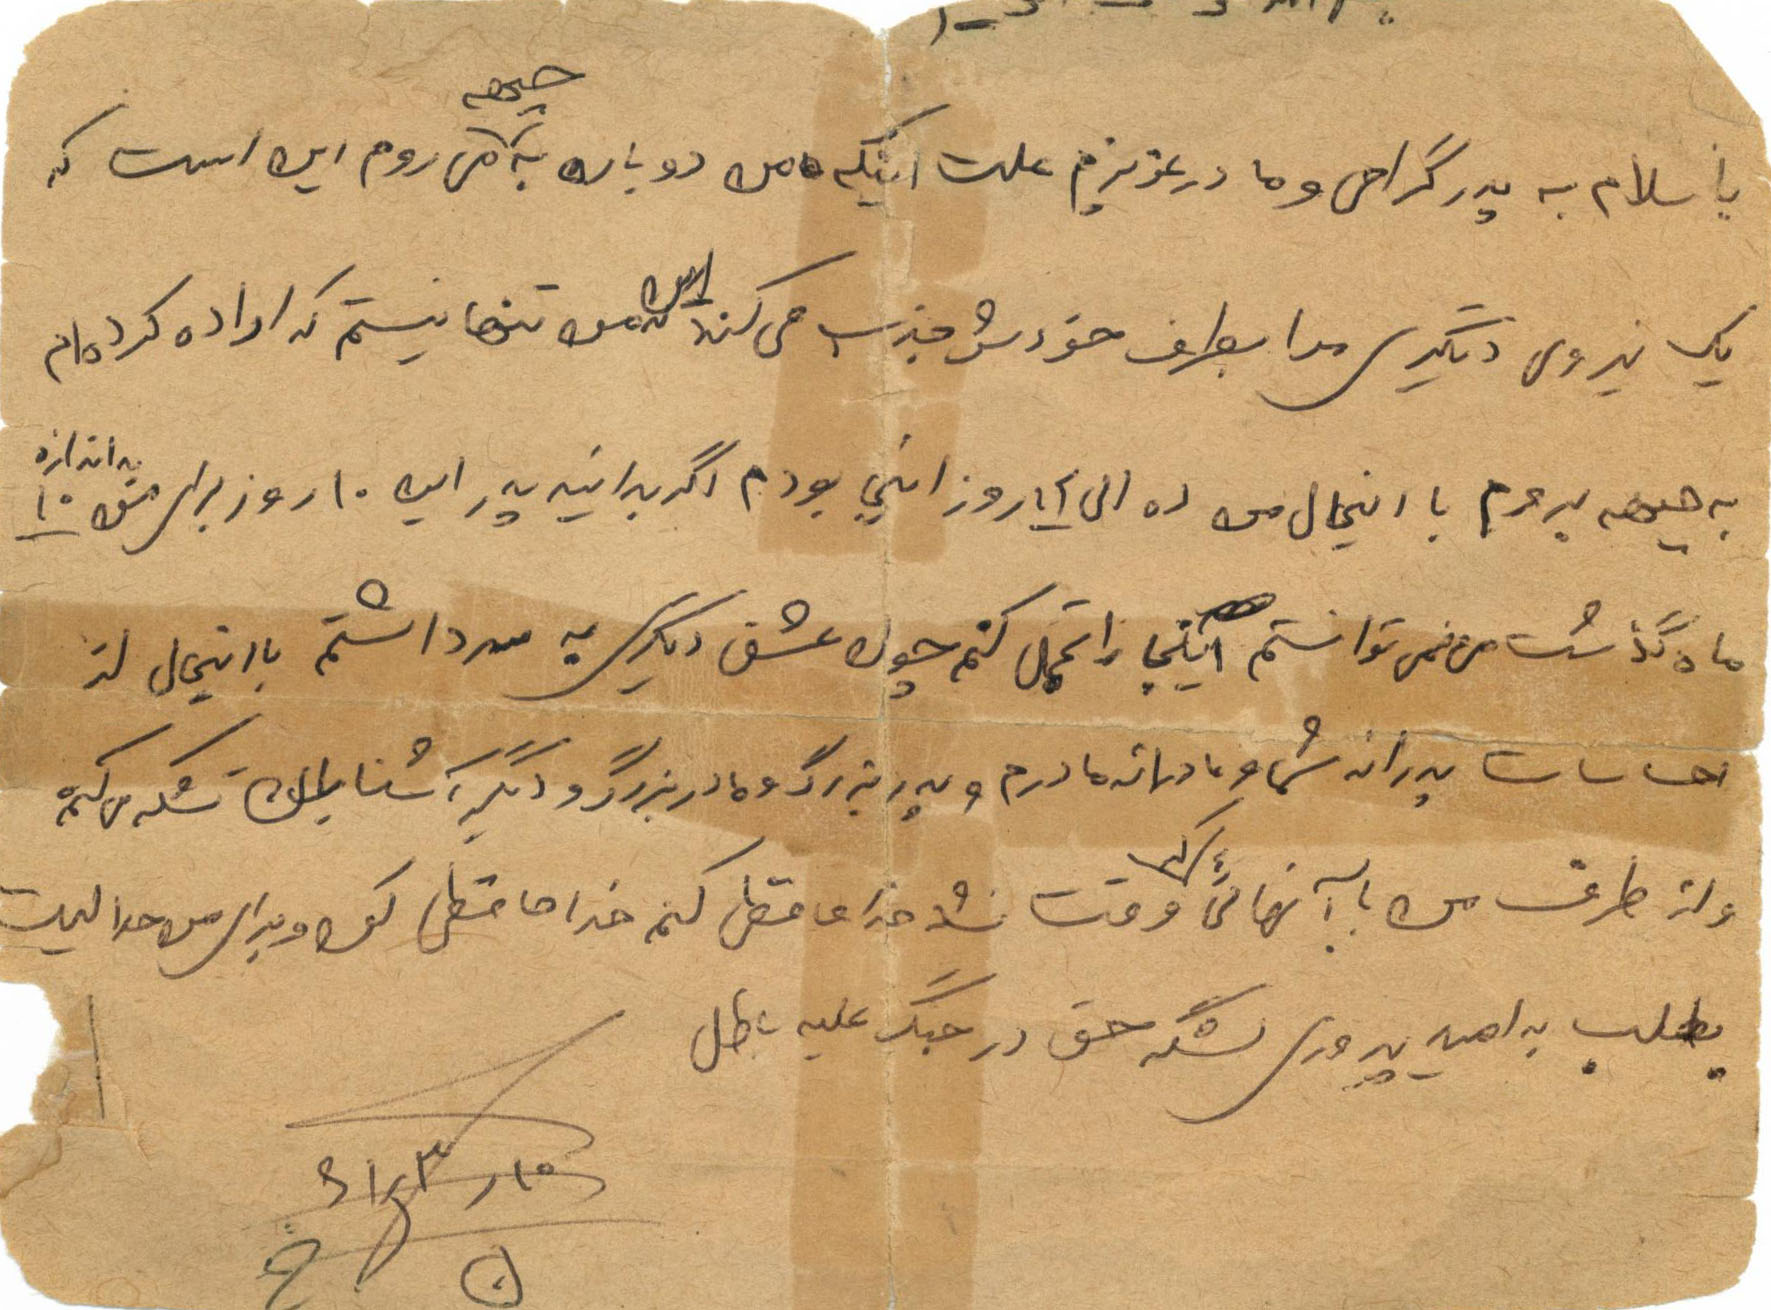 با سلام به پدر گرامی و مادر عزیزم علت اینکه من دوباره به جبهه می روم این است که
یک نیروی دیگری مرا بطرف خودش جذب می کند این که من تنها نیستم که اراده کرده ام
به جبهه بروم با اینحال من ده الی ۱۲ روز اینجا بودم اگر بدانید پدر این ۱۰ روز برای من به اندازه ۱۰
ماه گذشت من نمی توانستم اینجا را تحمل کنم چون عشق دیگری به سر داشتم با اینحال از
احساسات پدرانه شما و مادرانه مادرم و پدر بزرگ و مادر بزرگ و دیگر آشنایان تشکر می کنم
و از طرف من با آنهائی که وقت نشد خدا حافظی کنم خدا حافظی کن و برای من حلالیت
بطلب به امید پیروزی لشگر حق در جنگ علیه باطل
۱۰ر۳ر۶۱